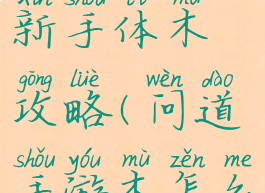 xīn shǒu tǐ mù
新手体木
gōng lüè wèn dào
攻略(问道
shǒu yóu mù zěn me
手游木怎么